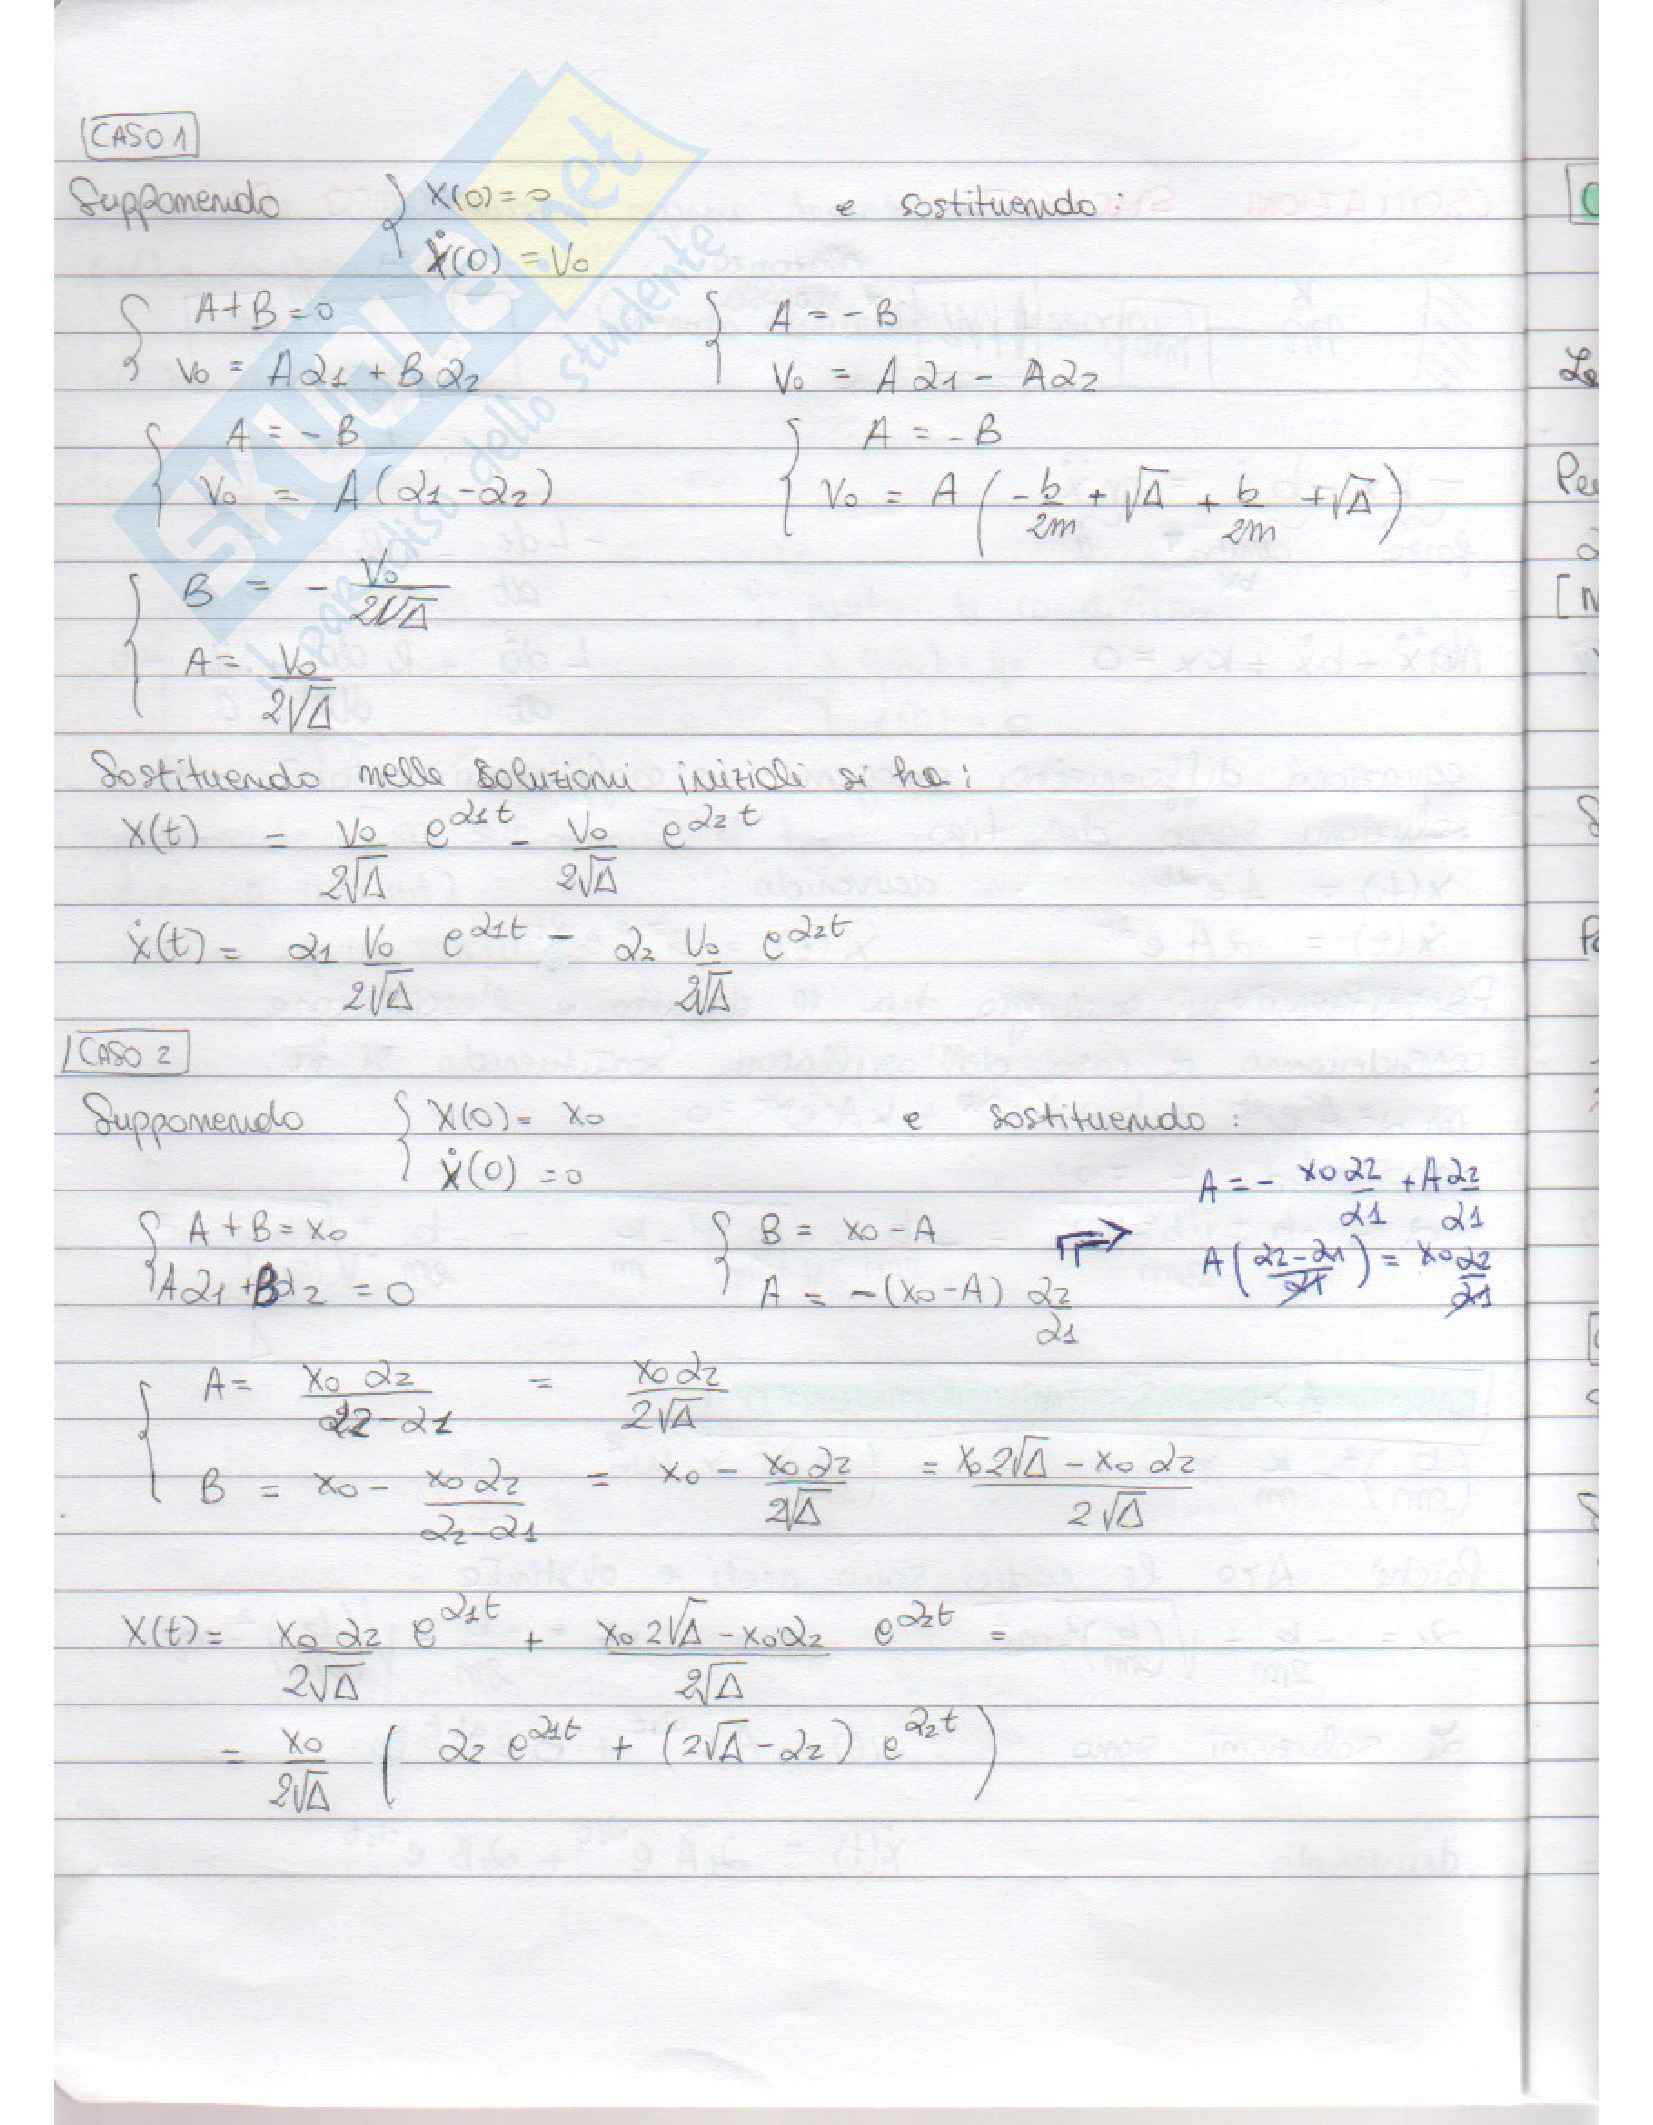 CASO 1
Supponendo { X(0) = 0 e sostituendo:
Ẋ(0) = V₀
{ A + B = 0 { A = - B
V₀ = A α₁ + B α₂ V₀ = A α₁ - A α₂
{ A = - B { A = - B
V₀ = A (α₁ - α₂) V₀ = A ( - b/2m + √Δ + b/2m + √Δ )
{ B = - V₀/2√Δ
A = V₀/2√Δ
Sostituendo nelle soluzioni iniziali si ha:
X(t) = V₀/2√Δ e^α₁t - V₀/2√Δ e^α₂t
ẋ(t) = α₁ V₀/2√Δ e^α₁t - α₂ V₀/2√Δ e^α₂t
CASO 2
Supponendo { X(0) = x₀ e sostituendo:
Ẋ(0) = 0
{ A + B = x₀ { B = x₀ - A
A α₁ + B α₂ = 0 A = -(x₀ - A) α₂/α₁
A = - x₀ α₂/α₁ + A α₂/α₁
A ( α₂ - α₁/α₁ ) = x₀ α₂/α₁
{ A = x₀ α₂/α₂ - α₁ = x₀ α₂/2√Δ
B = x₀ - x₀ α₂/α₂ - α₁ = x₀ - x₀ α₂/2√Δ = x₀ 2√Δ - x₀ α₂/2√Δ
X(t) = x₀ α₂/2√Δ e^α₁t + x₀ 2√Δ - x₀ α₂/2√Δ e^α₂t =
= x₀/2√Δ ( α₂ e^α₁t + (2√Δ - α₂) e^α₂t )
SKUOLA.net
il paradiso dello studente